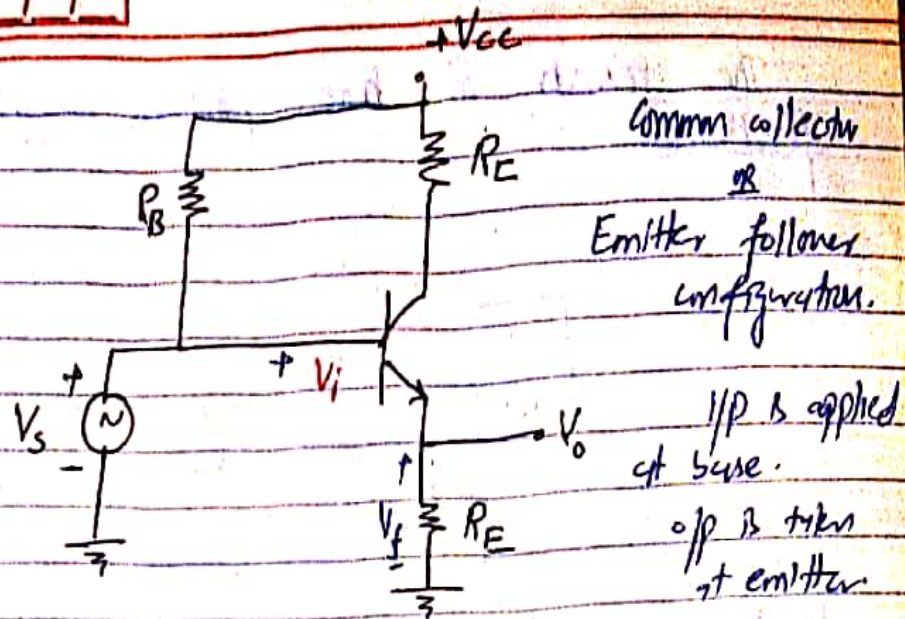 +VCC
RC
Common collector
OR
RB
Emitter follower
configuration.
+
+ Vi
VS
-
Vo
I/P is applied
at base.
Vf
-
RE
o/p is taken
at emitter.